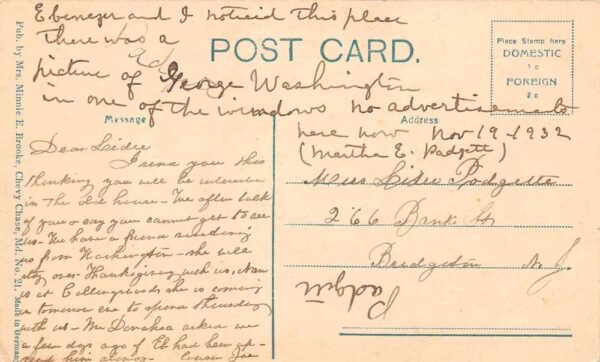 Ebenezer and I noticid this place
there was a ad
picture of George Washington
in one of the windows no advertisements
here now Nov 19-1932
(Martha E. Padgett)
POST CARD.
Place Stamp here
DOMESTIC
1c
FOREIGN
2c
Message
Address
Pub. by Mrs. Minnie E. Brooke, Chevy Chase, Md. No. 21. Made in Germany
Dear Lidie
I send you this
thinking you will be interested
in the old house - We often talk
of you & say you cannot get to see
us - We have a friend
from Washington - she will
stay over Thanksgiving with us,
at Collingswood she is coming
tomorrow eve to spend Thursday
with us - Mr asked me
a few days ago if Eb had been up -
Miss Lidie Padgett
266 Bank St
Bridgeton N. J.
Padgett